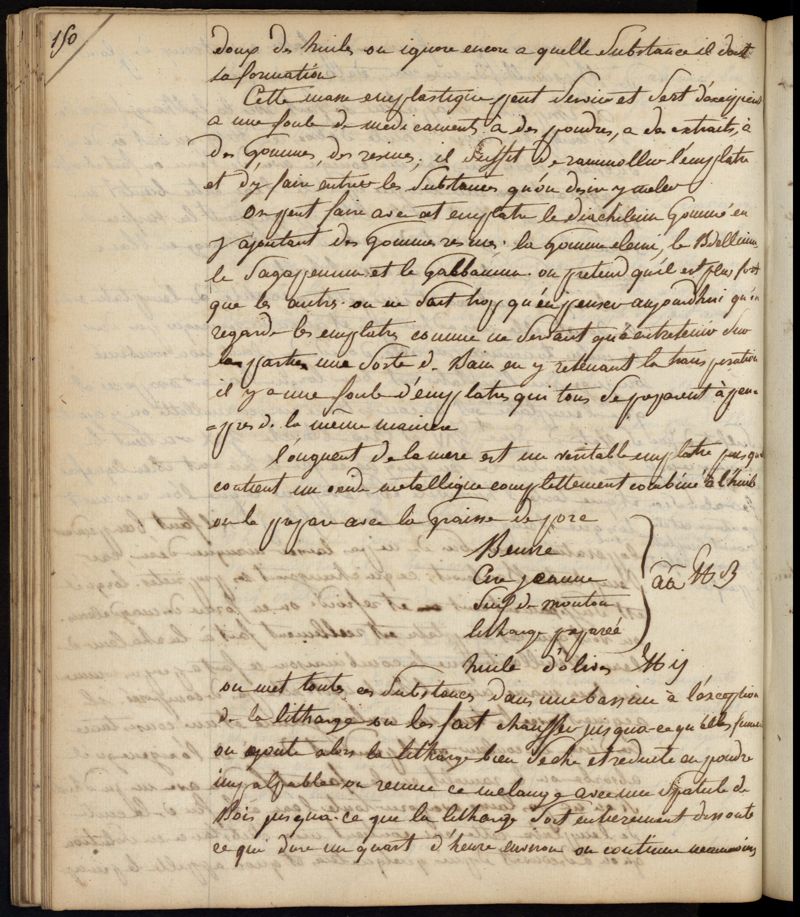 150
doux des huiles on ignore encore a quelle substance il doit
sa formation
Cette masse emplastique peut servir et sert d'excipient
a une foule de medicaments à des poudres, a des extraits, à
des gommes, des resines, il suffit de rammollir l'emplatre
et d'y faire entrer les substances qu'on desire y meler
On peut faire avec cet emplatre le diachilum Gommé en
y ajoutant des gommes resines. la gomme elemi, le Bdellium
le sagapenum et le galbanum. on pretend qu'il est plus fort
que les autres. on ne sait trop qu'en penser aujourdhui qu'on
regarde les emplatres comme ne servant qu'a entretenir sur
les parties une sorte de Bain en y retenant la transpiration
il y a une foule d'emplatres qui tous se preparent à peu
=pres de la même maniere
l'onguent de la mere est un veritable emplatre puisqu'il
contient un oxide metallique complettement combiné à l'huile
on le prepare avec la graisse de porc
Beurre
Cire jeaunne
Suif de mouton
litharge preparée
āā ℔ ß
huile d'olives ℔ ij
on met toutes ces substances dans une bassine à l'exception
de la litharge on les fait chauffer jusqua-ce qu'elles fument
on ajoute alors la litharge bien seche et reduite en poudre
impalpable on remue ce melange avec une spatule de
Bois jusqua-ce que la litharge soit entierement dissoute
ce qui dure un quart d'heure environ on continue neanmoins